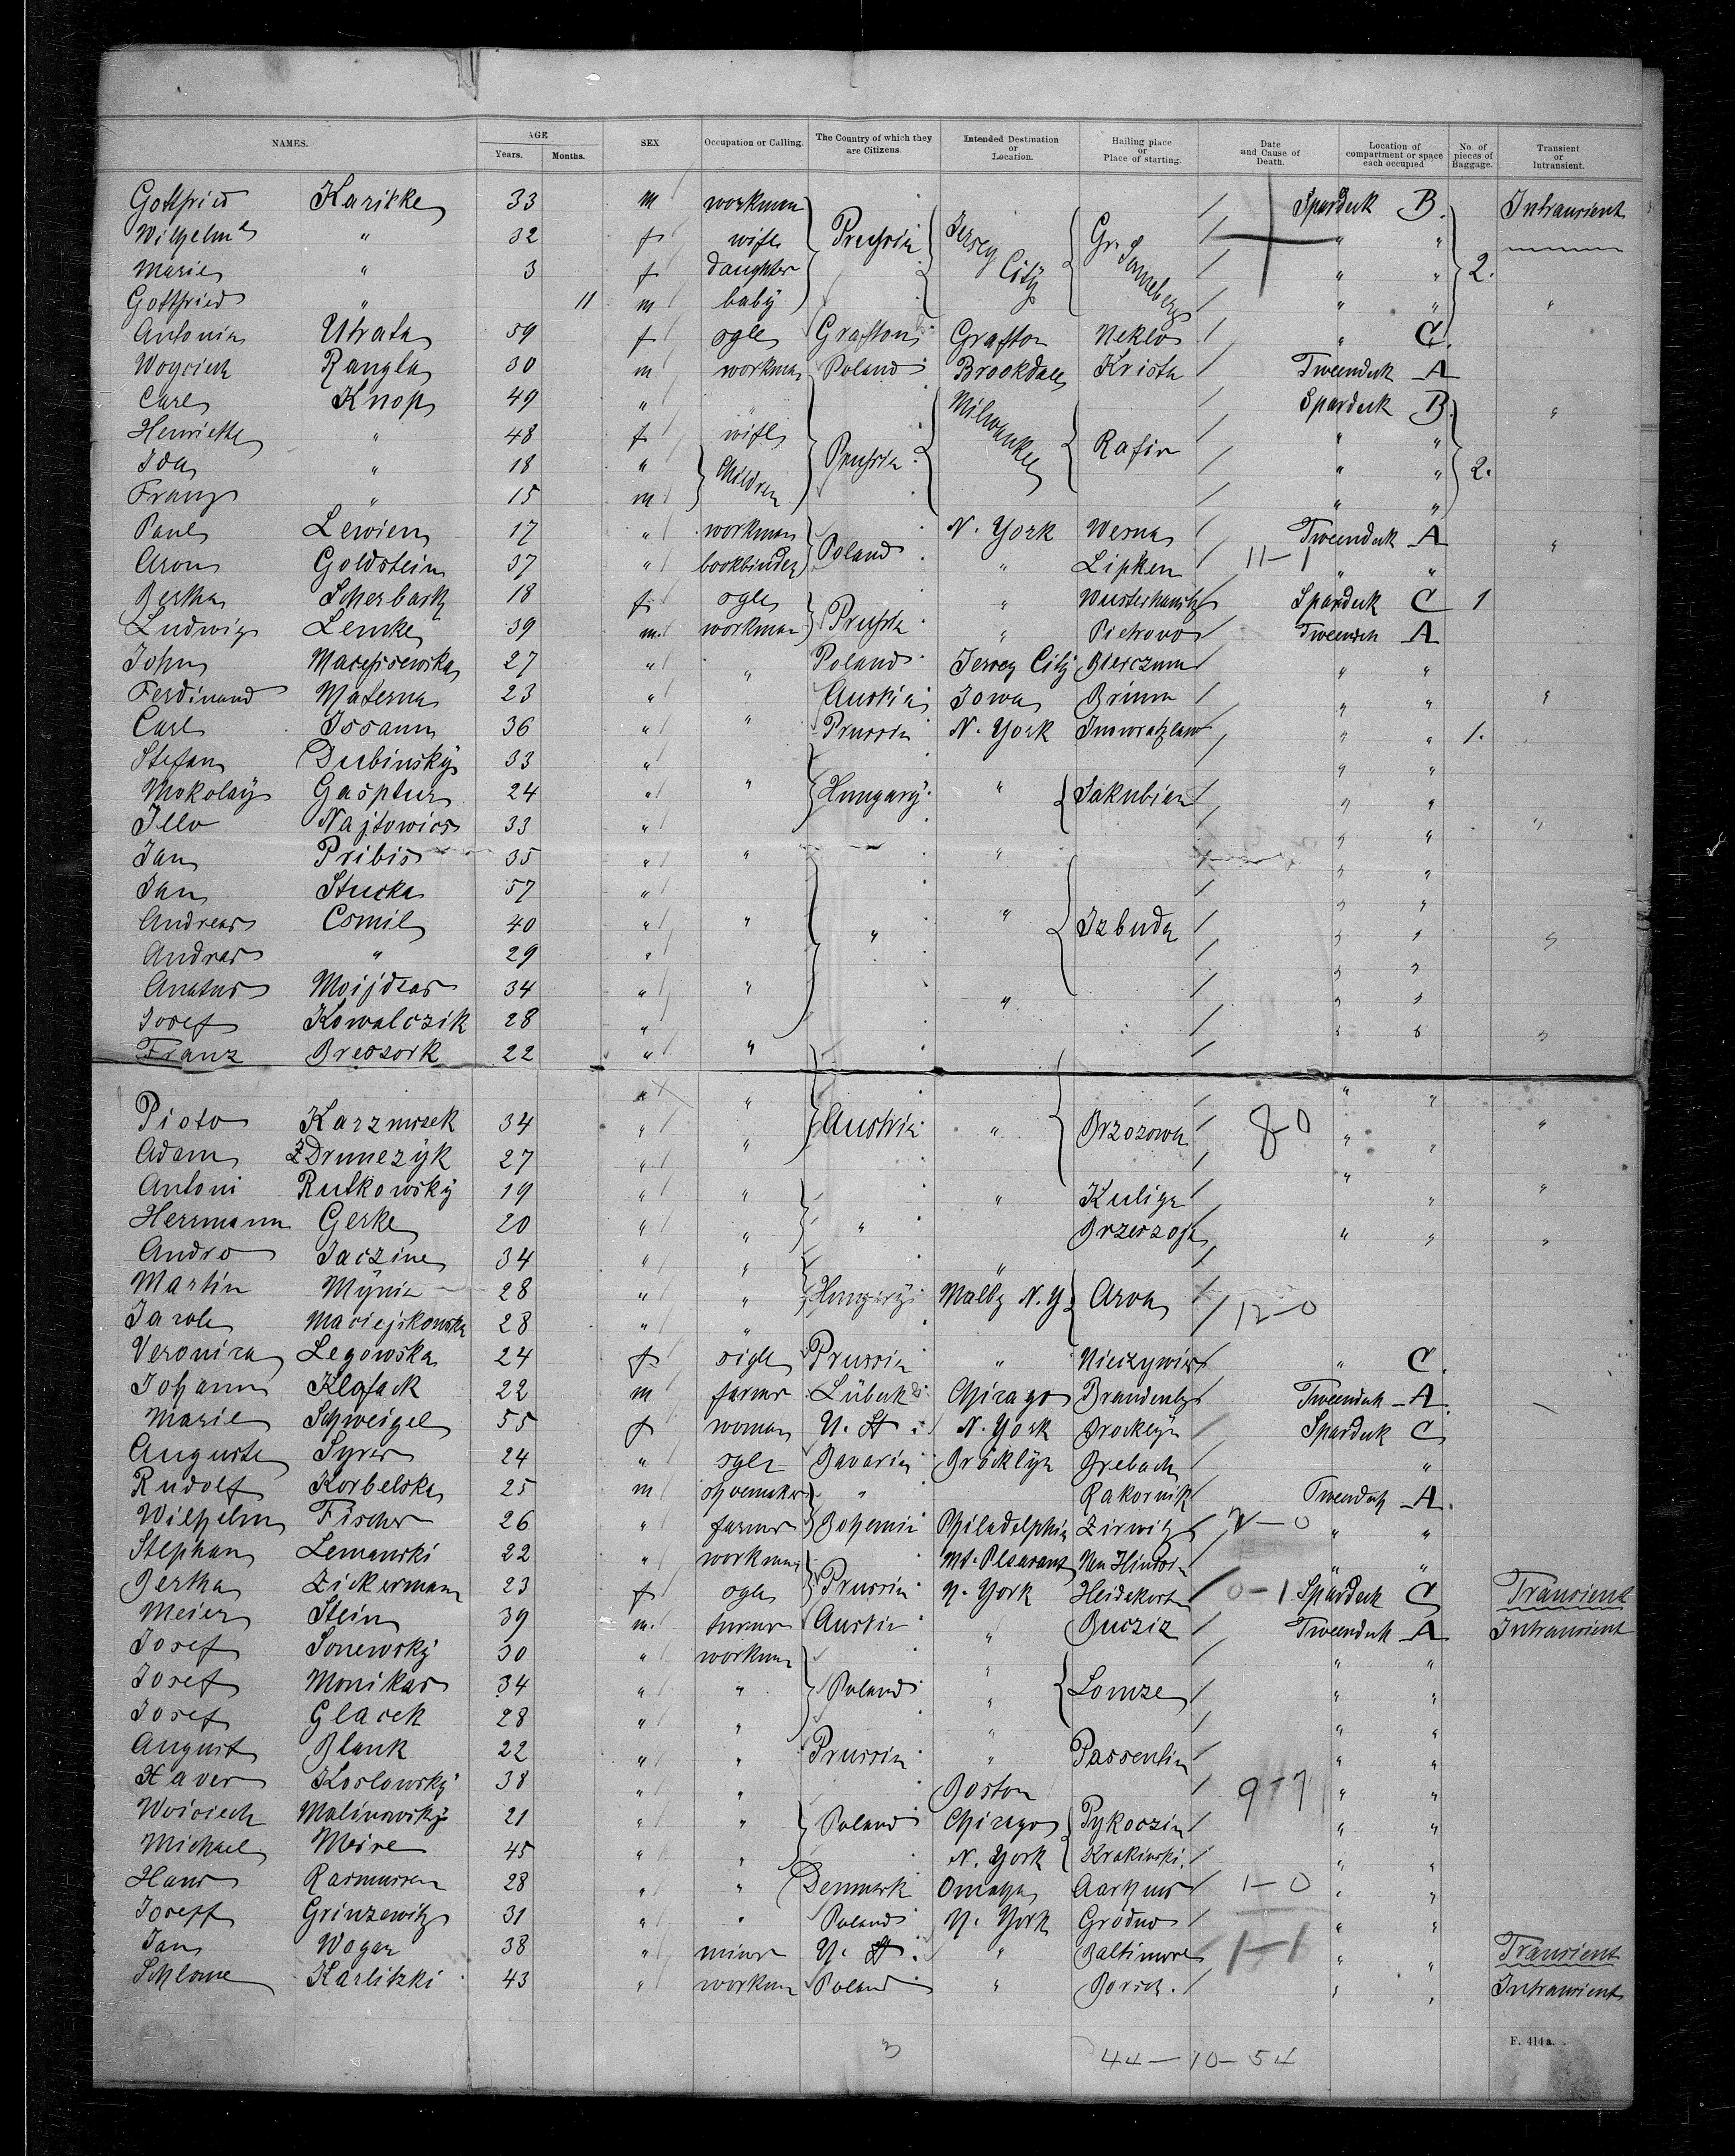 NAMES. AGE Years. Months. SEX Occupation or Calling. The Country of which they are Citizens. Intended Destination or Location. Hailing place or Place of starting. Date and Cause of Death. Location of compartment or space each occupied No. of pieces of Baggage. Transient or Intransient.
Gottfried Karikke 33 m workman Spardeck B. Intransient
Wilhelme " 32 f wife Prussia Jersey City " "
Marie " 3 f daughter " " 2.
Gottfried " 11 m baby " " "
Antonia Utrata 59 f sgle Grafton Grafton Neklo " C.
Woyciech Rangla 30 m workman Poland Brookdale Krista Tweendeck A
Carl Knop 49 " " Milwaukee Spardeck B. "
Henriette " 48 f wife Prussia Rafin " "
Ida " 18 " Children " " 2.
Franz " 15 m " "
Paul Lewien 17 " workman Poland N. York Wesna Tweendeck A "
Aron Goldstein 37 " bookbinder " Lipken 11-1 " "
Bertha Scherbarth 18 f sgle Prussia " Spardeck C 1
Ludwig Lemke 39 m. workman " Pietrovo Tweendeck A
John 27 " " Poland Jersey City " "
Ferdinand Materna 23 " Austria Iowa Brünn " " "
Carl Issann 36 " " Prussia N. York Inowrazlaw " " 1.
Stefan Dubinský 33 " " "
Mokolaÿ Gasptur 24 " " Hungarÿ " Jakubian " "
Illo Najtowics 33 " " " "
Jan Pribis 35 " " " " "
Jan Stucka 57 " " "
Andreas Csmil 40 " " " " Izbuda " "
Andras " 29 " " "
Anatus Moijdsas 34 " " " " "
Josef Kowalczik 28 " " " "
Franz Breosork 22 " "
" " " "
Pioto Karzmrsek 34 " " Austria " Brzozowa 8-0 " " "
Adam ZDrunezÿk 27 " " "
Antoni Rutkowskÿ 19 " " " Kuliga " "
Herrmann Gerke 20 " " " " " "
Andro Jaczine 34 " " "
Martin Mÿnia 28 " " Hungarÿ N.Y. Arva
28 " " 12-0
Veronica Legowska 24 f sigle Prussia " " C.
Johann Klafack 22 m farmer Lübeck Chicago Brandenbg Tweendeck A.
Marie Schweigel 55 f woman U. St N. York Brocklyn Spardeck C
Auguste Syrer 24 " sgle Bavaria Brocklyn Grebach "
Rudolf Korbelska 25 m shoemaker " Rakornik Tweendeck A.
Wilhelm Fischer 26 " farmer Bohemia Philadelphia Zirwitz " "
Stephan Lemanski 22 " workman Mt. Pleasant " "
Bertha Zickermann 23 f sgle Prussia N. York 0-1 Spardeck C Transient
Meier Stein 39 m. turner Austria " Bucziz Tweendeck A Intransient
Josef Sonewskÿ 30 " workman " " "
Josef Monikas 34 " " Poland " Lomze " "
Josef Glacek 28 " " " " "
August Blank 22 " " Prussia " Passentin " "
Xaver Koslowskÿ 38 " " Boston 9-7 " "
Woiciech Malinowskÿ 21 " " Poland Chicago Pykoczin " "
Michael Meire 45 " " N. York Krakinski. " "
Hans Rasmussen 28 " " Denmark Omaha Aarhus 1-0 " "
Joseff Grinzewitz 31 " " Poland N. York Grodno " "
Jan Wogar 38 " miner U. St. " Baltimore 1-1 " " Transient
Schlome Karlitzki 43 " workman Poland " " " Intransient
F. 414 a.
44-10-54